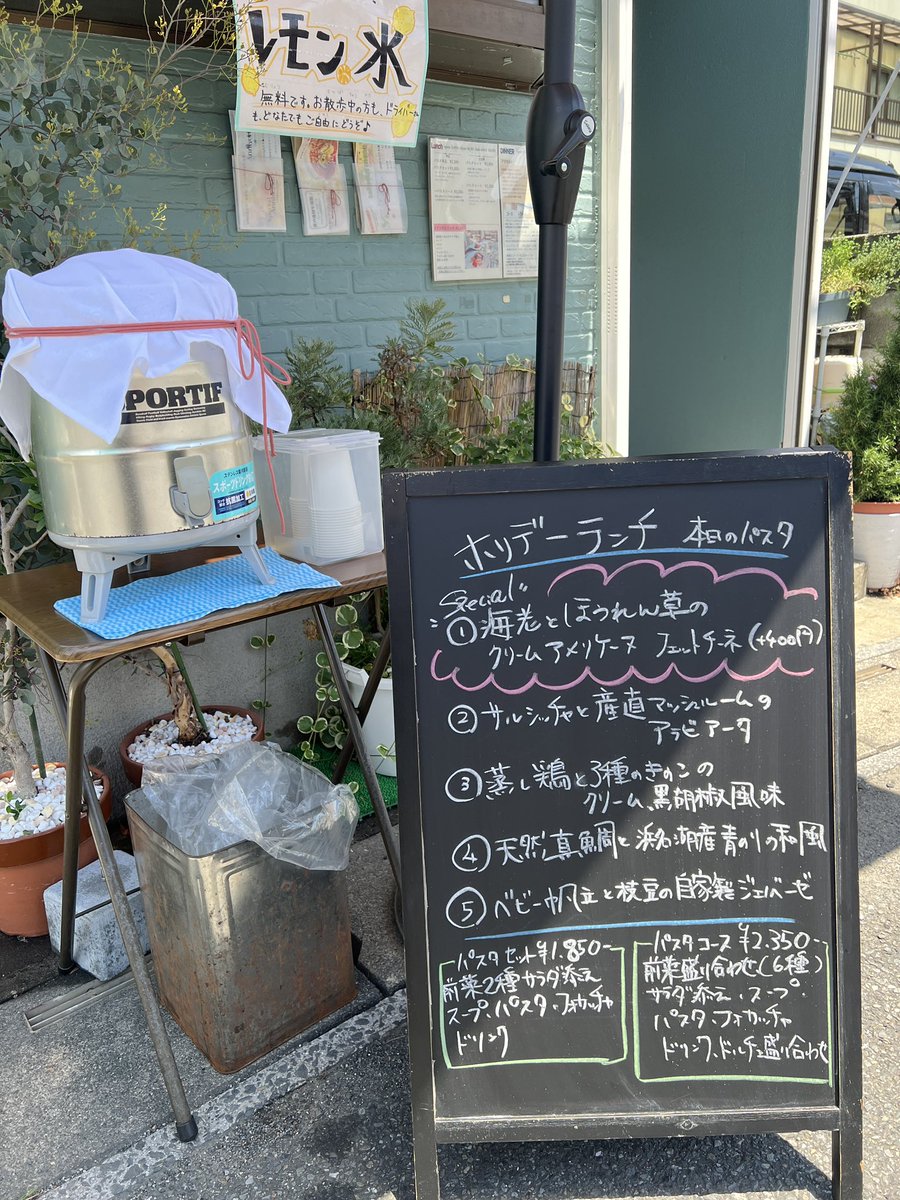 レモン水
無料です。お散歩中の方も、ドライバーさん
も、どなたでもご自由にどうぞ♪
Lunch
DINNER
SPORTIF
スポーツドリンク
抗菌加工
ホリデーランチ 本日のパスタ
Special
① 海老とほうれん草の
クリームアメリケーヌ フェットチーネ(+400円)
② サルシッチャと産直マッシュルームの
アラビアータ
③ 蒸し鶏と3種のきのこの
クリーム黒胡椒風味
④ 天然真鯛と浜名湖産青のりの和風
⑤ ベビー帆立と枝豆の自家製ジェノベーゼ
パスタセット ¥1.850-
前菜2種サラダ添え
スープ、パスタ、フォカッチャ
ドリンク
パスタコース ¥2.350-
前菜盛り合わせ(6種)
サラダ添え・スープ・
パスタ、フォカッチャ
ドリンク、ドルチェ盛り合わせ